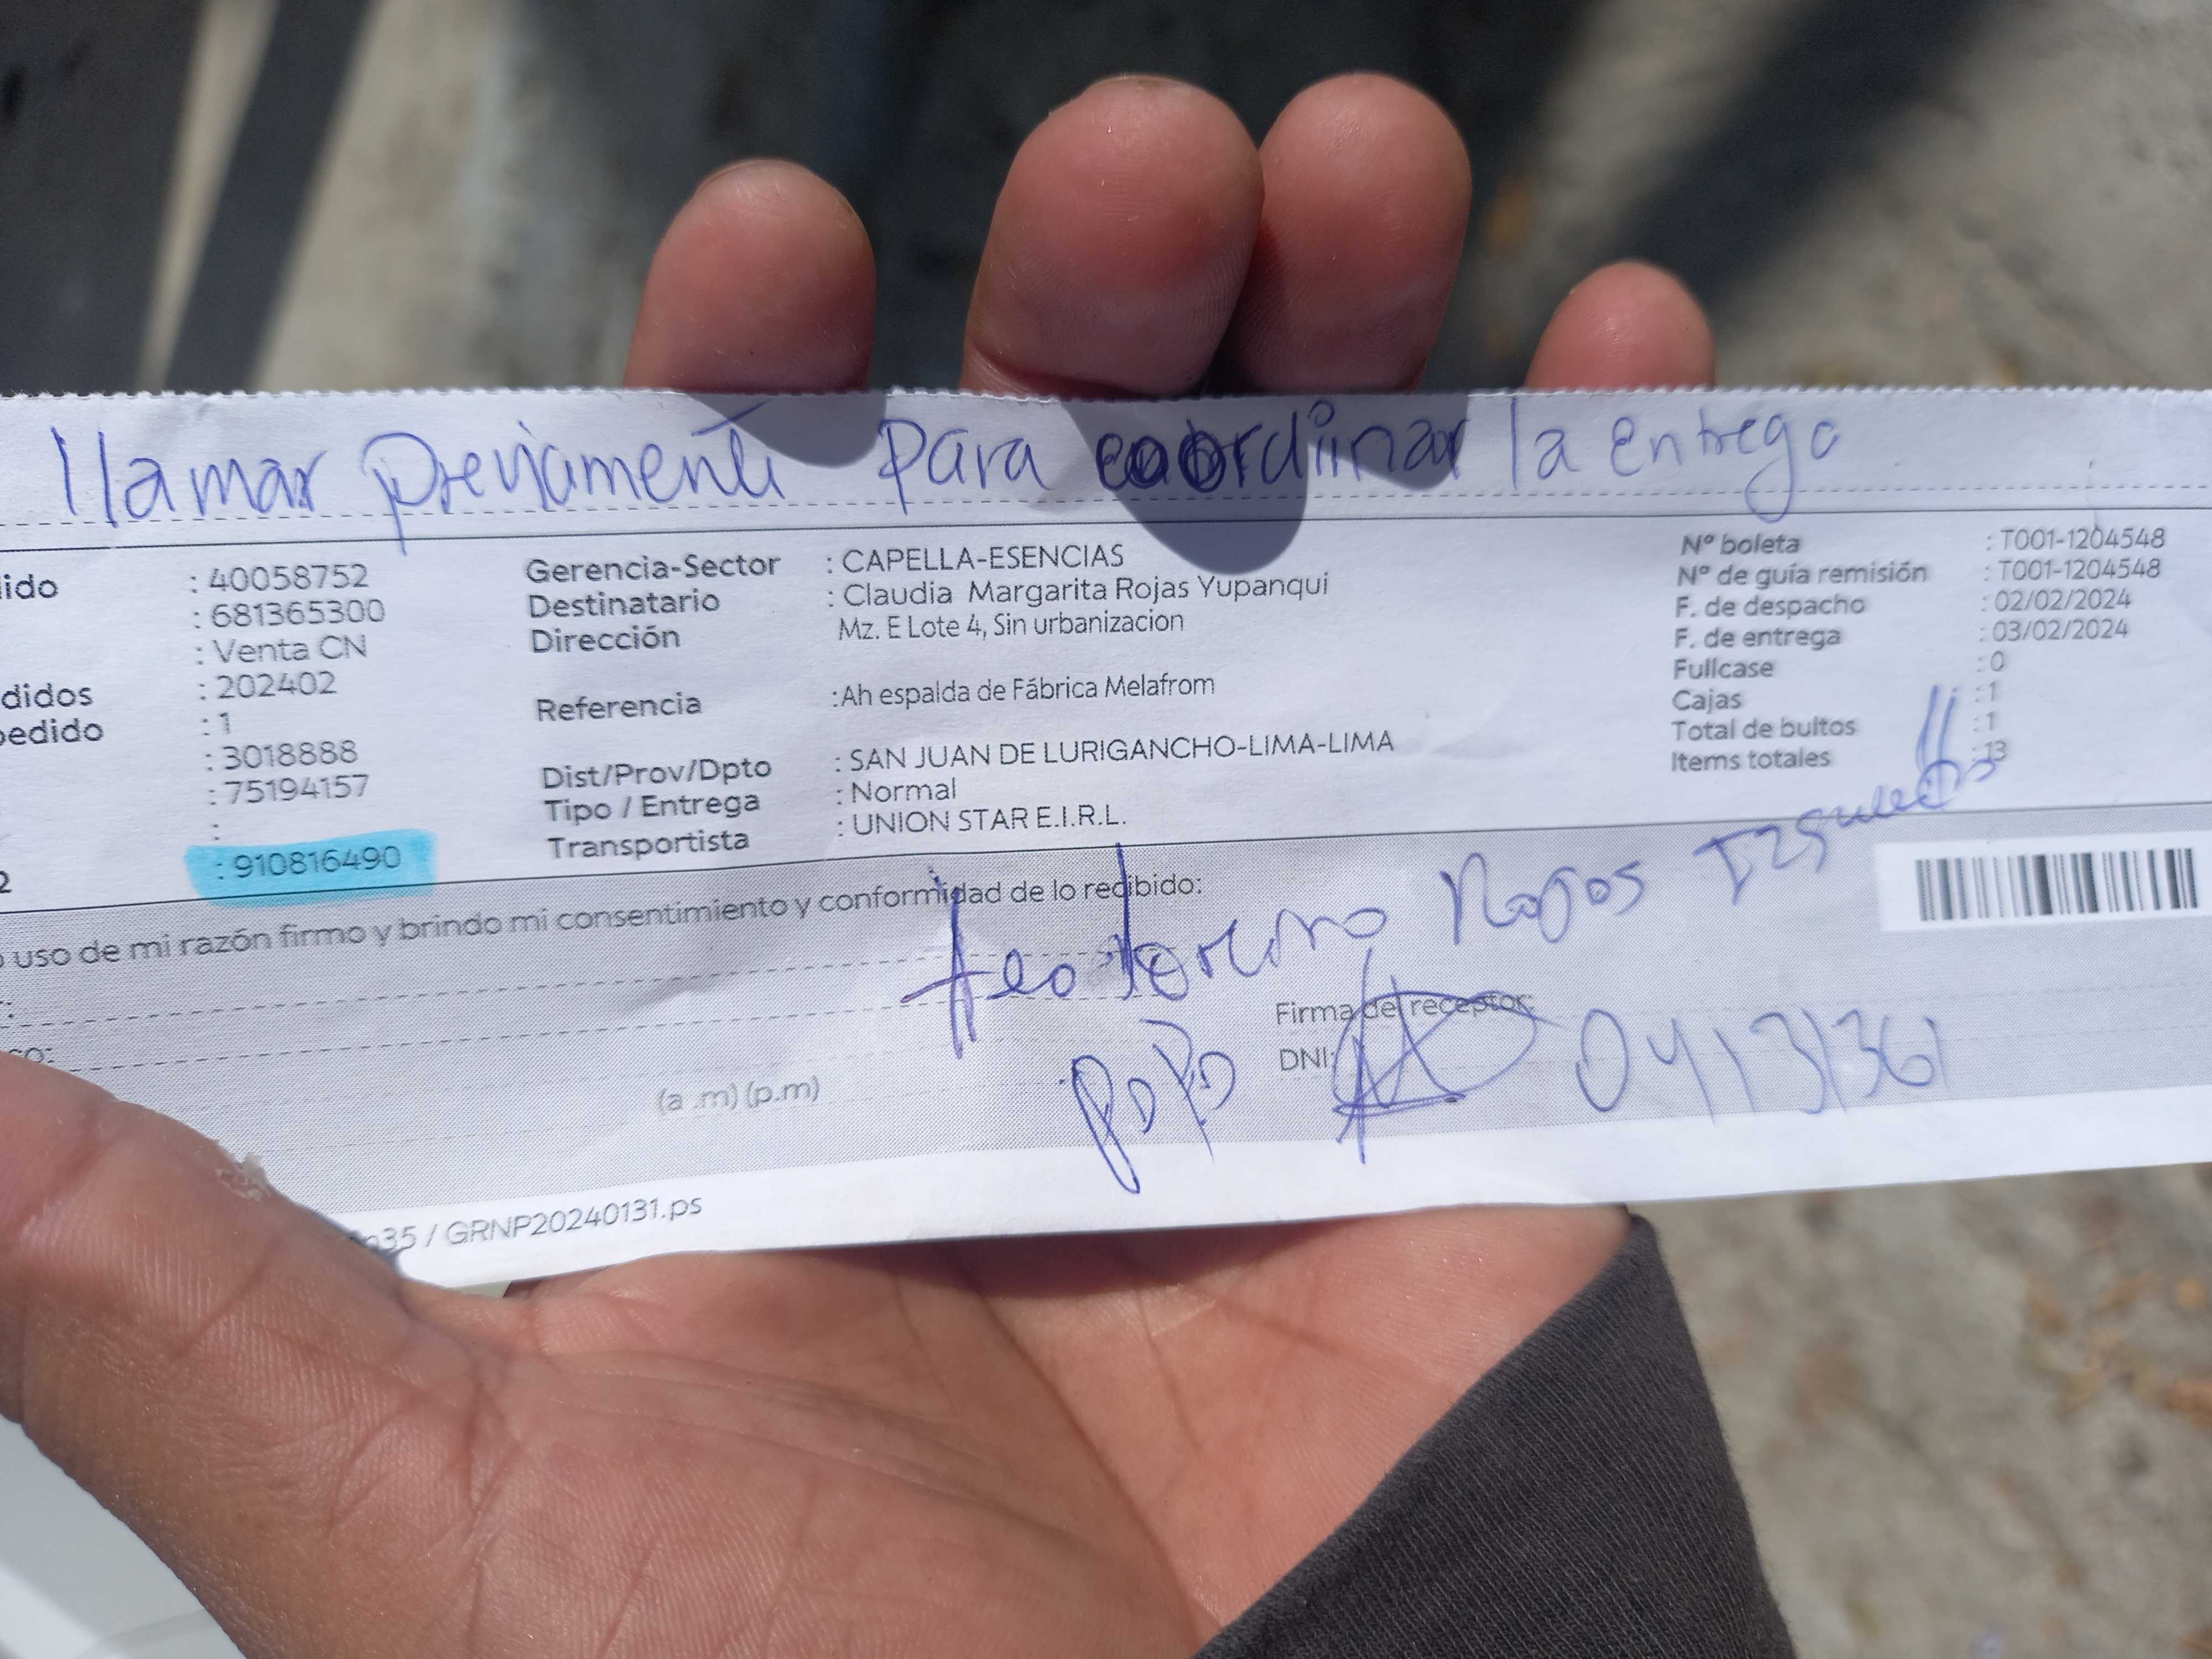 llamar previamente para coordiinar la entrega
dido : 40058752
: 681365300
: Venta CN
didos : 202402
pedido : 1
: 3018888
: 75194157
:
2 : 910816490
Gerencia-Sector : CAPELLA-ESENCIAS
Destinatario : Claudia Margarita Rojas Yupanqui
Dirección Mz. E Lote 4, Sin urbanizacion
Referencia :Ah espalda de Fábrica Melafrom
Dist/Prov/Dpto : SAN JUAN DE LURIGANCHO-LIMA-LIMA
Tipo / Entrega : Normal
Transportista : UNION STAR E.I.R.L.
Nº boleta : T001-1204548
Nº de guía remisión : T001-1204548
F. de despacho : 02/02/2024
F. de entrega : 03/02/2024
Fullcase : 0
Cajas : 1
Total de bultos : 1
Items totales : 13
uso de mi razón firmo y brindo mi consentimiento y conformidad de lo recibido:
Rojas
Firma del receptor:
DNI: 04131361
(a .m) (p.m)
35 / GRNP20240131.ps